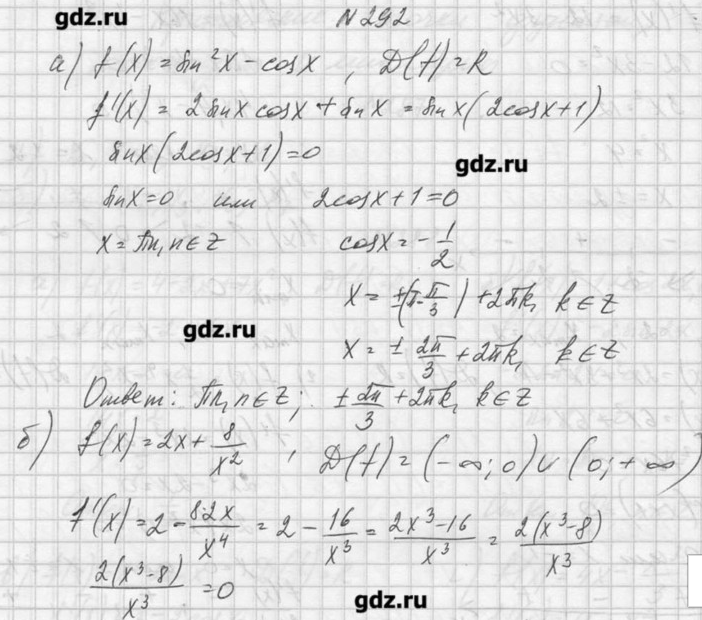 gdz.ru
№292
а) f(x) = sin²x - cosx , D(f) = R
f'(x) = 2sinx cosx + sinx = sinx(2cosx+1)
sinx(2cosx+1)=0
gdz.ru
sinx=0 или 2cosx+1=0
x=πn, n∈Z cosx=-1/2
x = ±(π-π/3)+2πk, k∈Z
gdz.ru
x = ± 2π/3 + 2πk, k∈Z
Ответ: πn, n∈Z; ± 2π/3 + 2πk, k∈Z
б) f(x)=2x+ 8/x² , D(f) = (-∞;0)∪(0;+∞)
f'(x)=2- 8·2x/x⁴ = 2 - 16/x³ = (2x³-16)/x³ = 2(x³-8)/x³
2(x³-8)/x³ =0
gdz.ru